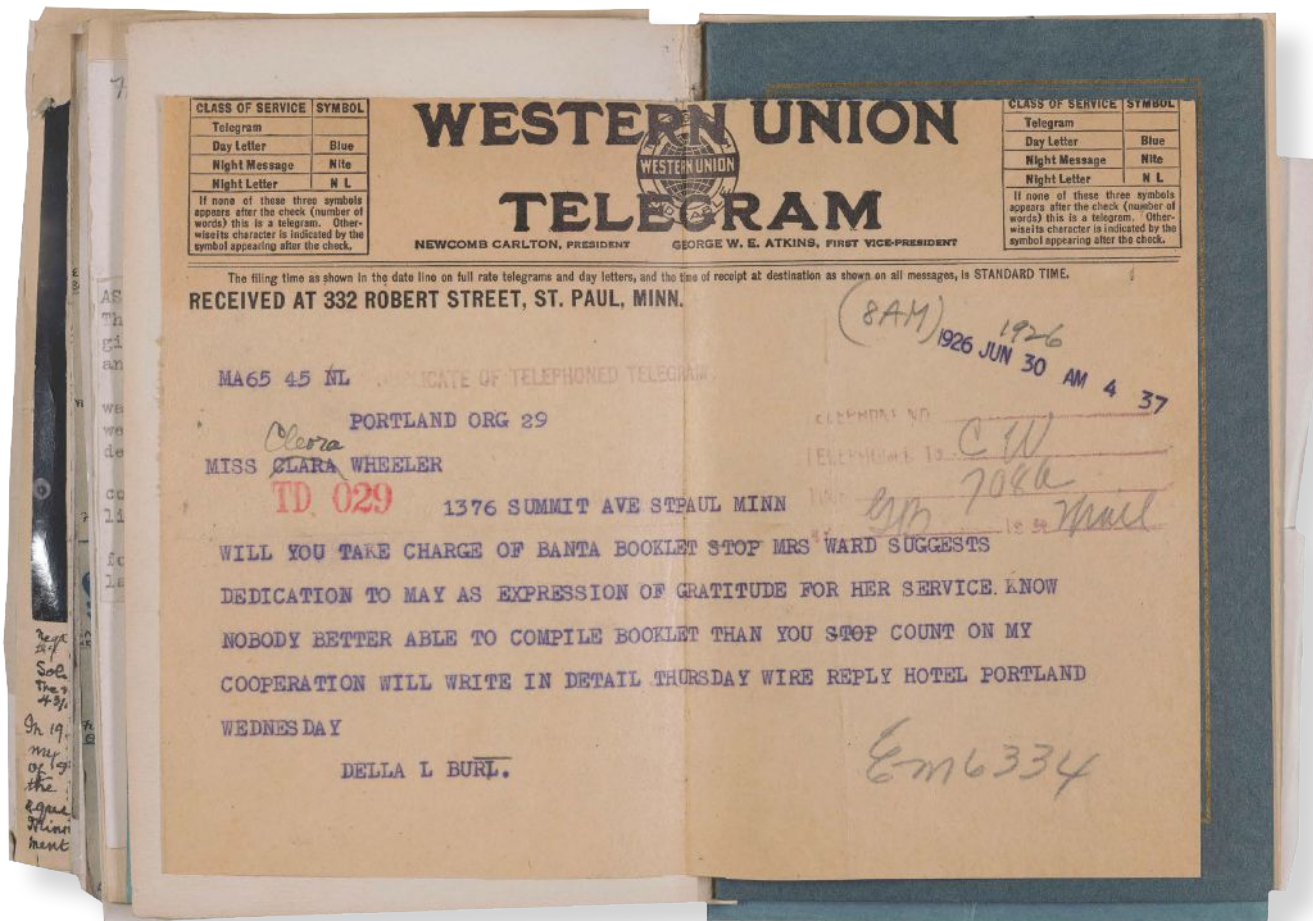 CLASS OF SERVICE SYMBOL
Telegram
Day Letter Blue
Night Message Nite
Night Letter N L
If none of these three symbols
appears after the check (number of
words) this is a telegram. Other-
wise its character is indicated by the
symbol appearing after the check.
WESTERN UNION
WESTERN UNION
TELEGRAM
NEWCOMB CARLTON, PRESIDENT GEORGE W. E. ATKINS, FIRST VICE-PRESIDENT
CLASS OF SERVICE SYMBOL
Telegram
Day Letter Blue
Night Message Nite
Night Letter N L
If none of these three symbols
appears after the check (number of
words) this is a telegram. Other-
wise its character is indicated by the
symbol appearing after the check.
The filing time as shown in the date line on full rate telegrams and day letters, and the time of receipt at destination as shown on all messages, is STANDARD TIME.
RECEIVED AT 332 ROBERT STREET, ST. PAUL, MINN.
(8AM)
1926
1926 JUN 30 AM 4 37
MA65 45 NL
DUPLICATE OF TELEPHONED TELEGRAM
PORTLAND ORG 29
TELEPHONE NO.
Cleora
MISS CLARA WHEELER
TELEPHONED TO CW
TD 029
1376 SUMMIT AVE STPAUL MINN
708a
GB mail
WILL YOU TAKE CHARGE OF BANTA BOOKLET STOP MRS WARD SUGGESTS
DEDICATION TO MAY AS EXPRESSION OF GRATITUDE FOR HER SERVICE. KNOW
NOBODY BETTER ABLE TO COMPILE BOOKLET THAN YOU STOP COUNT ON MY
COOPERATION WILL WRITE IN DETAIL THURSDAY WIRE REPLY HOTEL PORTLAND
WEDNESDAY
DELLA L BURT.
Em6334
AS
Th
gi
an
wa
wo
de
co
li
fo
la
In 19
my
of
the
Minn
ment